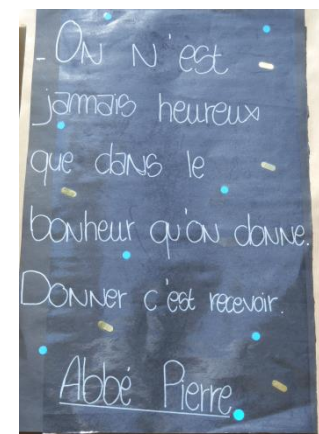 - ON N'est
jamais heureux
que dans le
bonheur qu'on donne.
Donner c'est recevoir.
Abbé Pierre.